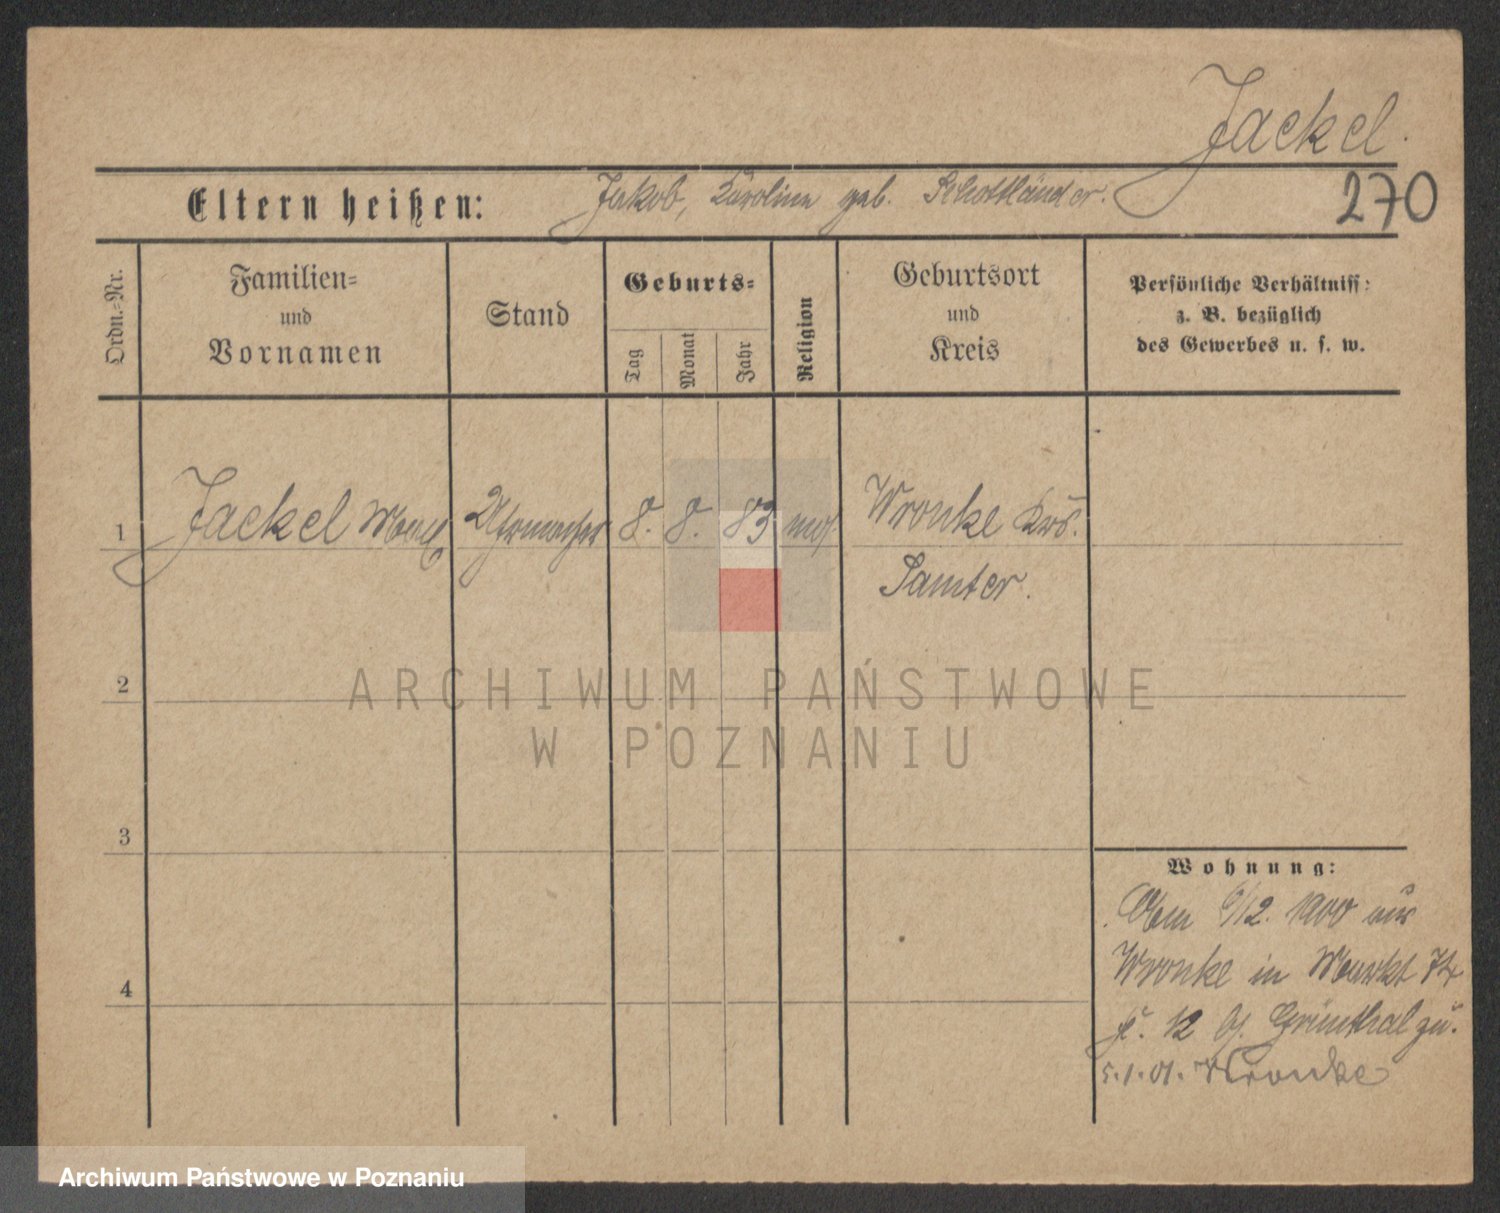 Jackel.
270
Eltern heißen: Jakob, Karoline geb. Schottländer.
Ordn.-Nr.
Familien- und Vornamen
Stand
Geburts-
Tag
Monat
Jahr
Religion
Geburtsort und Kreis
Persönliche Verhältniss:
z. B. bezüglich
des Gewerbes u. s. w.
1 Jackel Uhrmacher 8. 8. 83 mos. Wronke Krs.
Samter.
2
3
4
Wohnung:
12. 1900 aus
Wronke in Markt
12 b/. Grünthal zu.
5.1.01. Wronke
ARCHIWUM PAŃSTWOWE
W POZNANIU
Archiwum Państwowe w Poznaniu